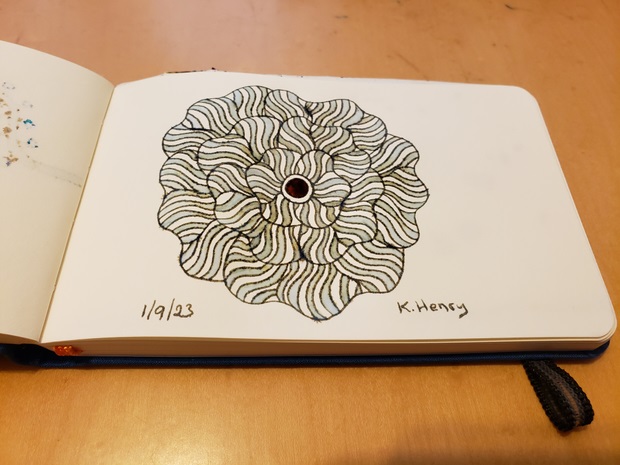 1/9/23
K. Henry